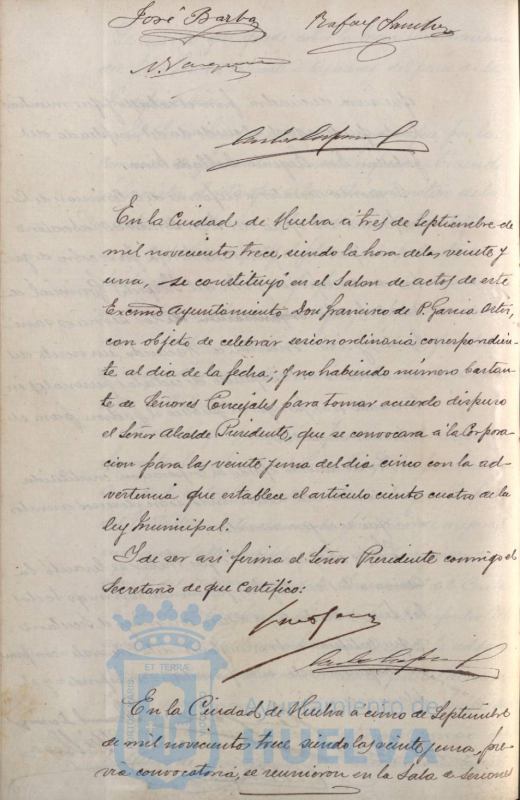 José Barba Rafael Sanchez
N. Vazquez
En la Ciudad de Huelva á tres de Septiembre de
mil novecientos trece, siendo la hora de las veinte y
una, se constituyó en el Salon de actos de este
Excmo Ayuntamiento Don Francisco de P. Garcia Ortiz,
con objeto de celebrar sesion ordinaria correspondien
te al dia de la fecha; y no habiendo número bastan
te de Señores Concejales para tomar acuerdo dispuso
el Señor Alcalde Presidente, que se convocara á la Corpora
cion para las veinte y una del dia cinco con la ad-
vertencia que establece el articulo ciento cuatro de la
ley Municipal.
Y de ser asi firma el Señor Presidente conmigo el
Secretario de que Certifico:
ET TERRÆ
En la Ciudad de Huelva a cinco de Septiembre
de mil novecientos trece siendo las veinte y una, pre-
via convocatoria, se reunieron en la Sala de Sesiones
Ayuntamiento de
HUELVA